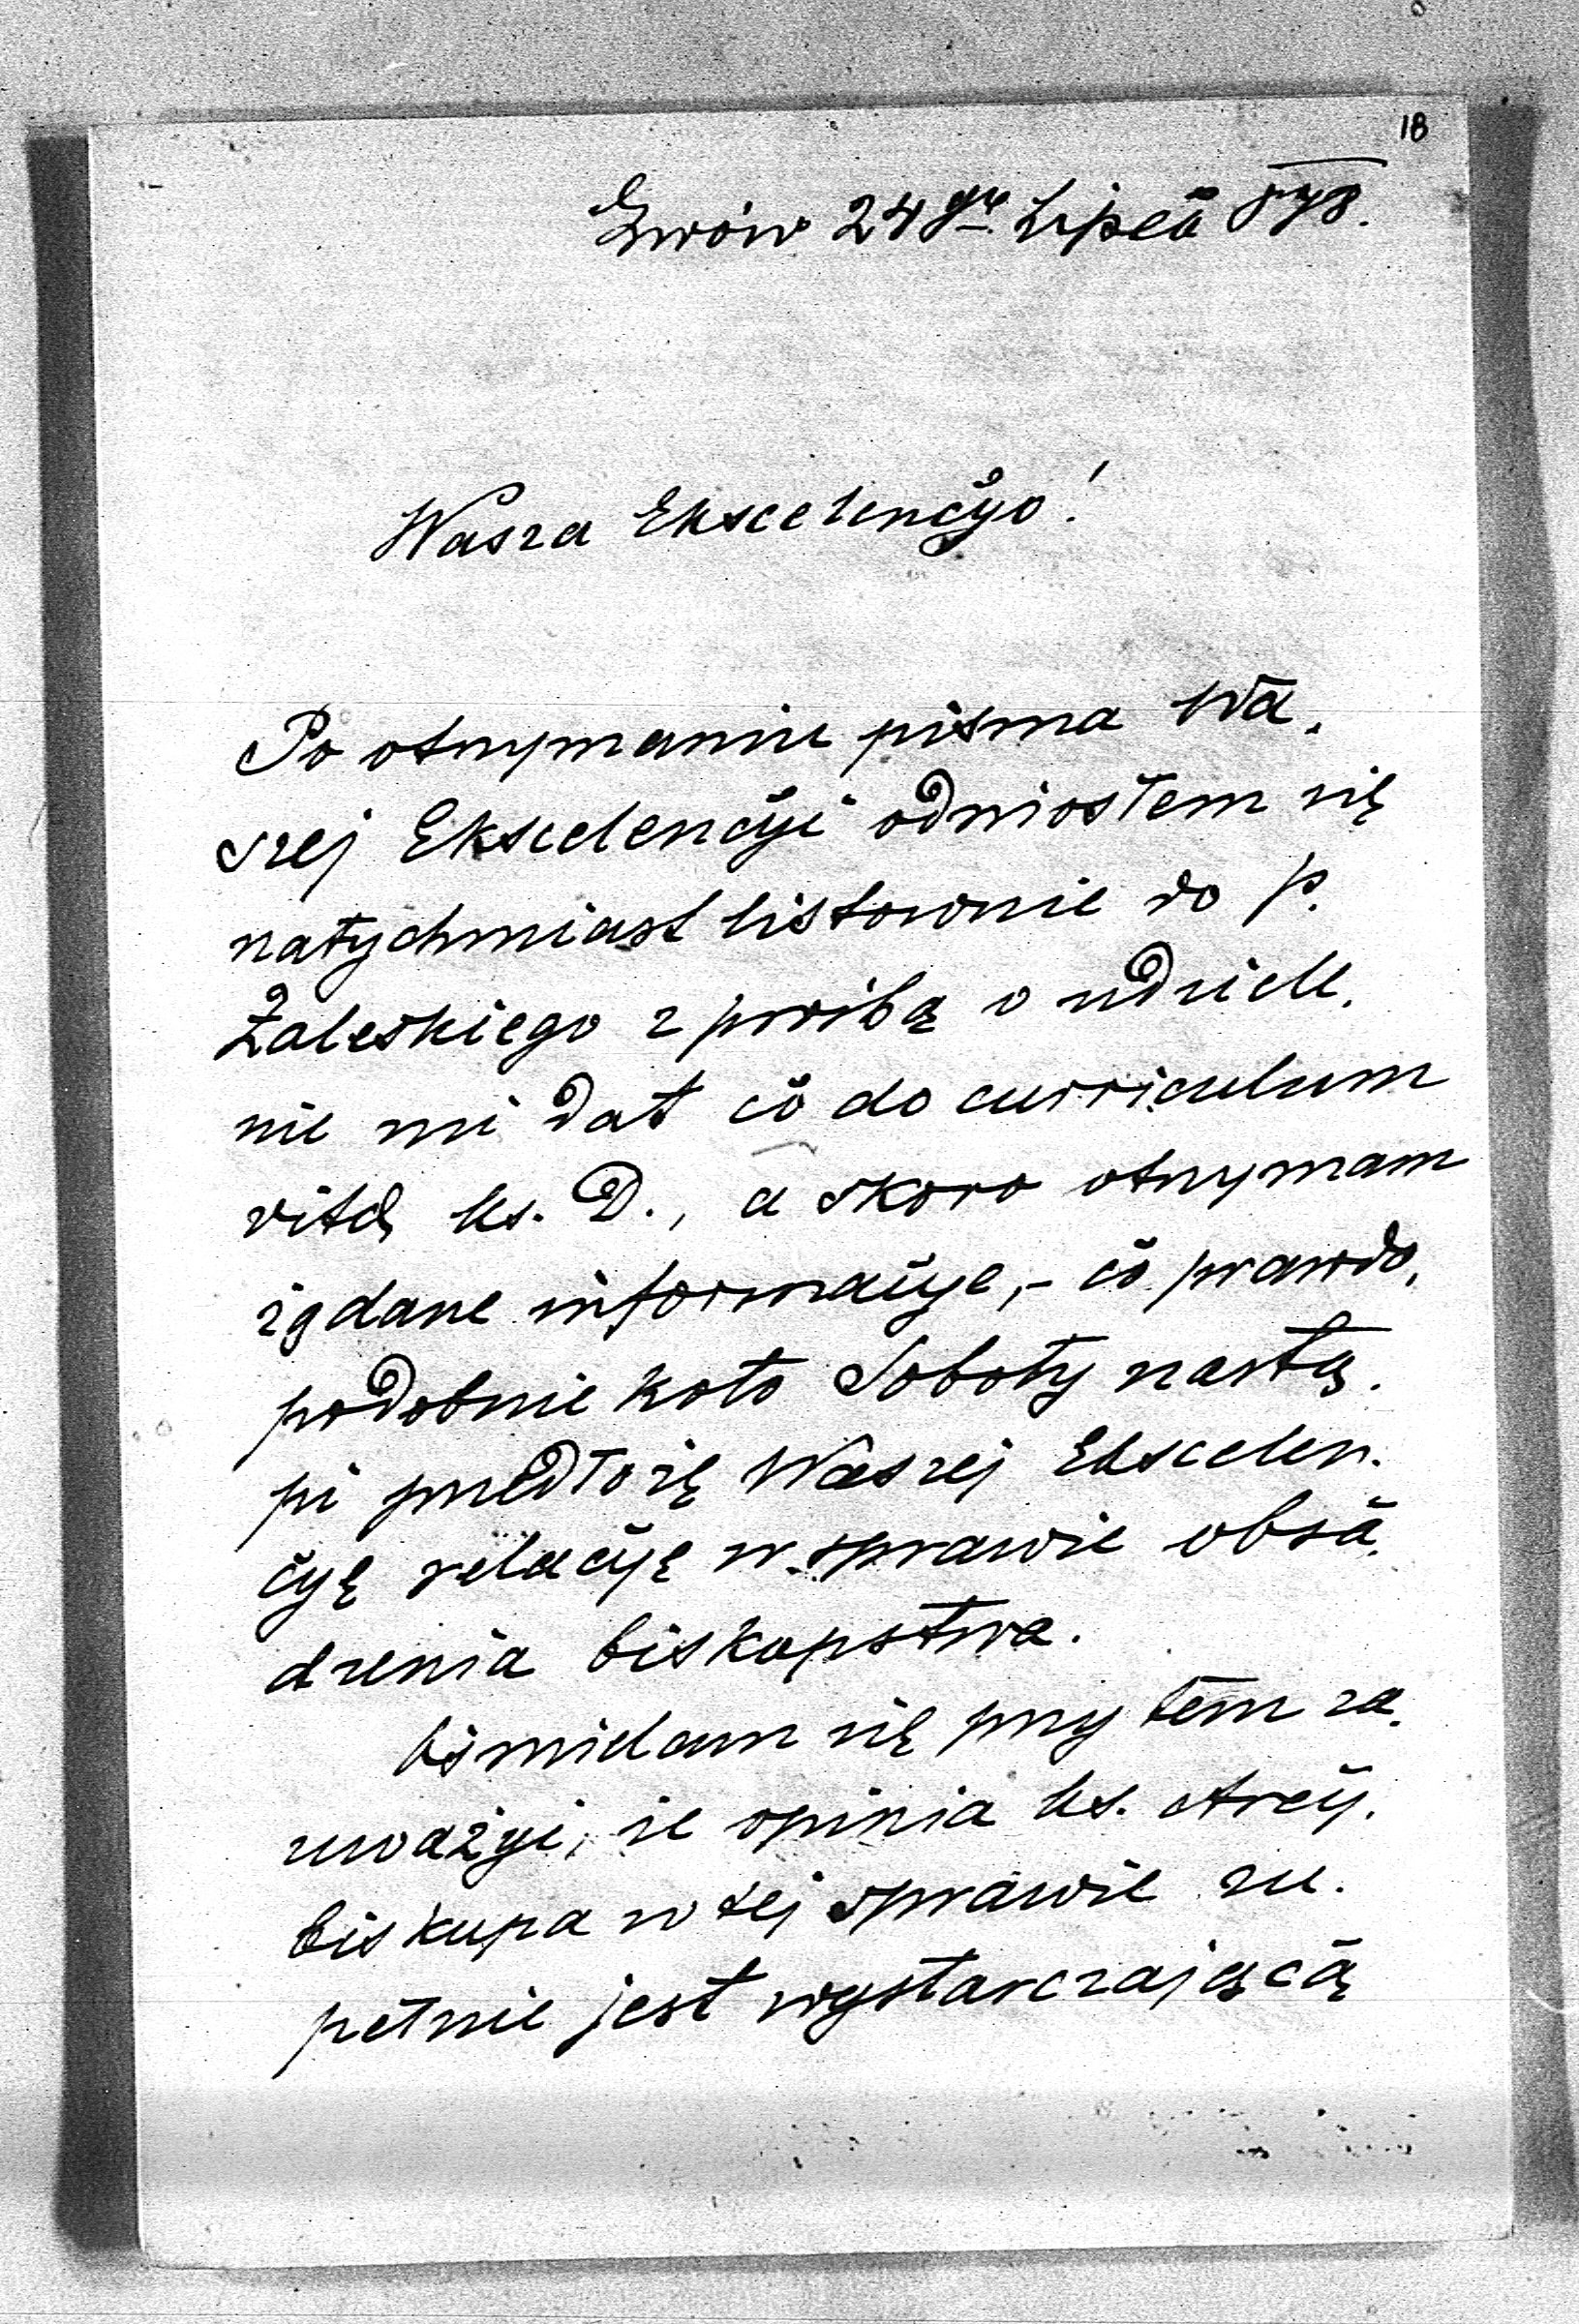 18
Lwów 24go Lipca 878.
Wasza Ekscelencyo!
Po otrzymaniu pisma Wa-
szej Ekscelencyi odniosłem się
natychmiast listownie do p.
Zaleskiego z prośbą o udziele-
nie mi dat co do curriculum
vitæ ks. D., a skoro otrzymam
żądane informacye, - co prawdo-
podobnie koło Soboty nastą-
pi przedłożę Waszej Ekscelen-
cyę relacyę w sprawie obsa-
dzenia biskupstwa.
Ośmielam się przy tem za-
uważyć, że opinia ks. Arcy-
biskupa w tej sprawie zu-
pełnie jest wystarczającą